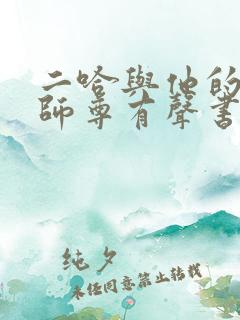 二哈與他的
師尊有聲書
純夕
未经同意禁止转载